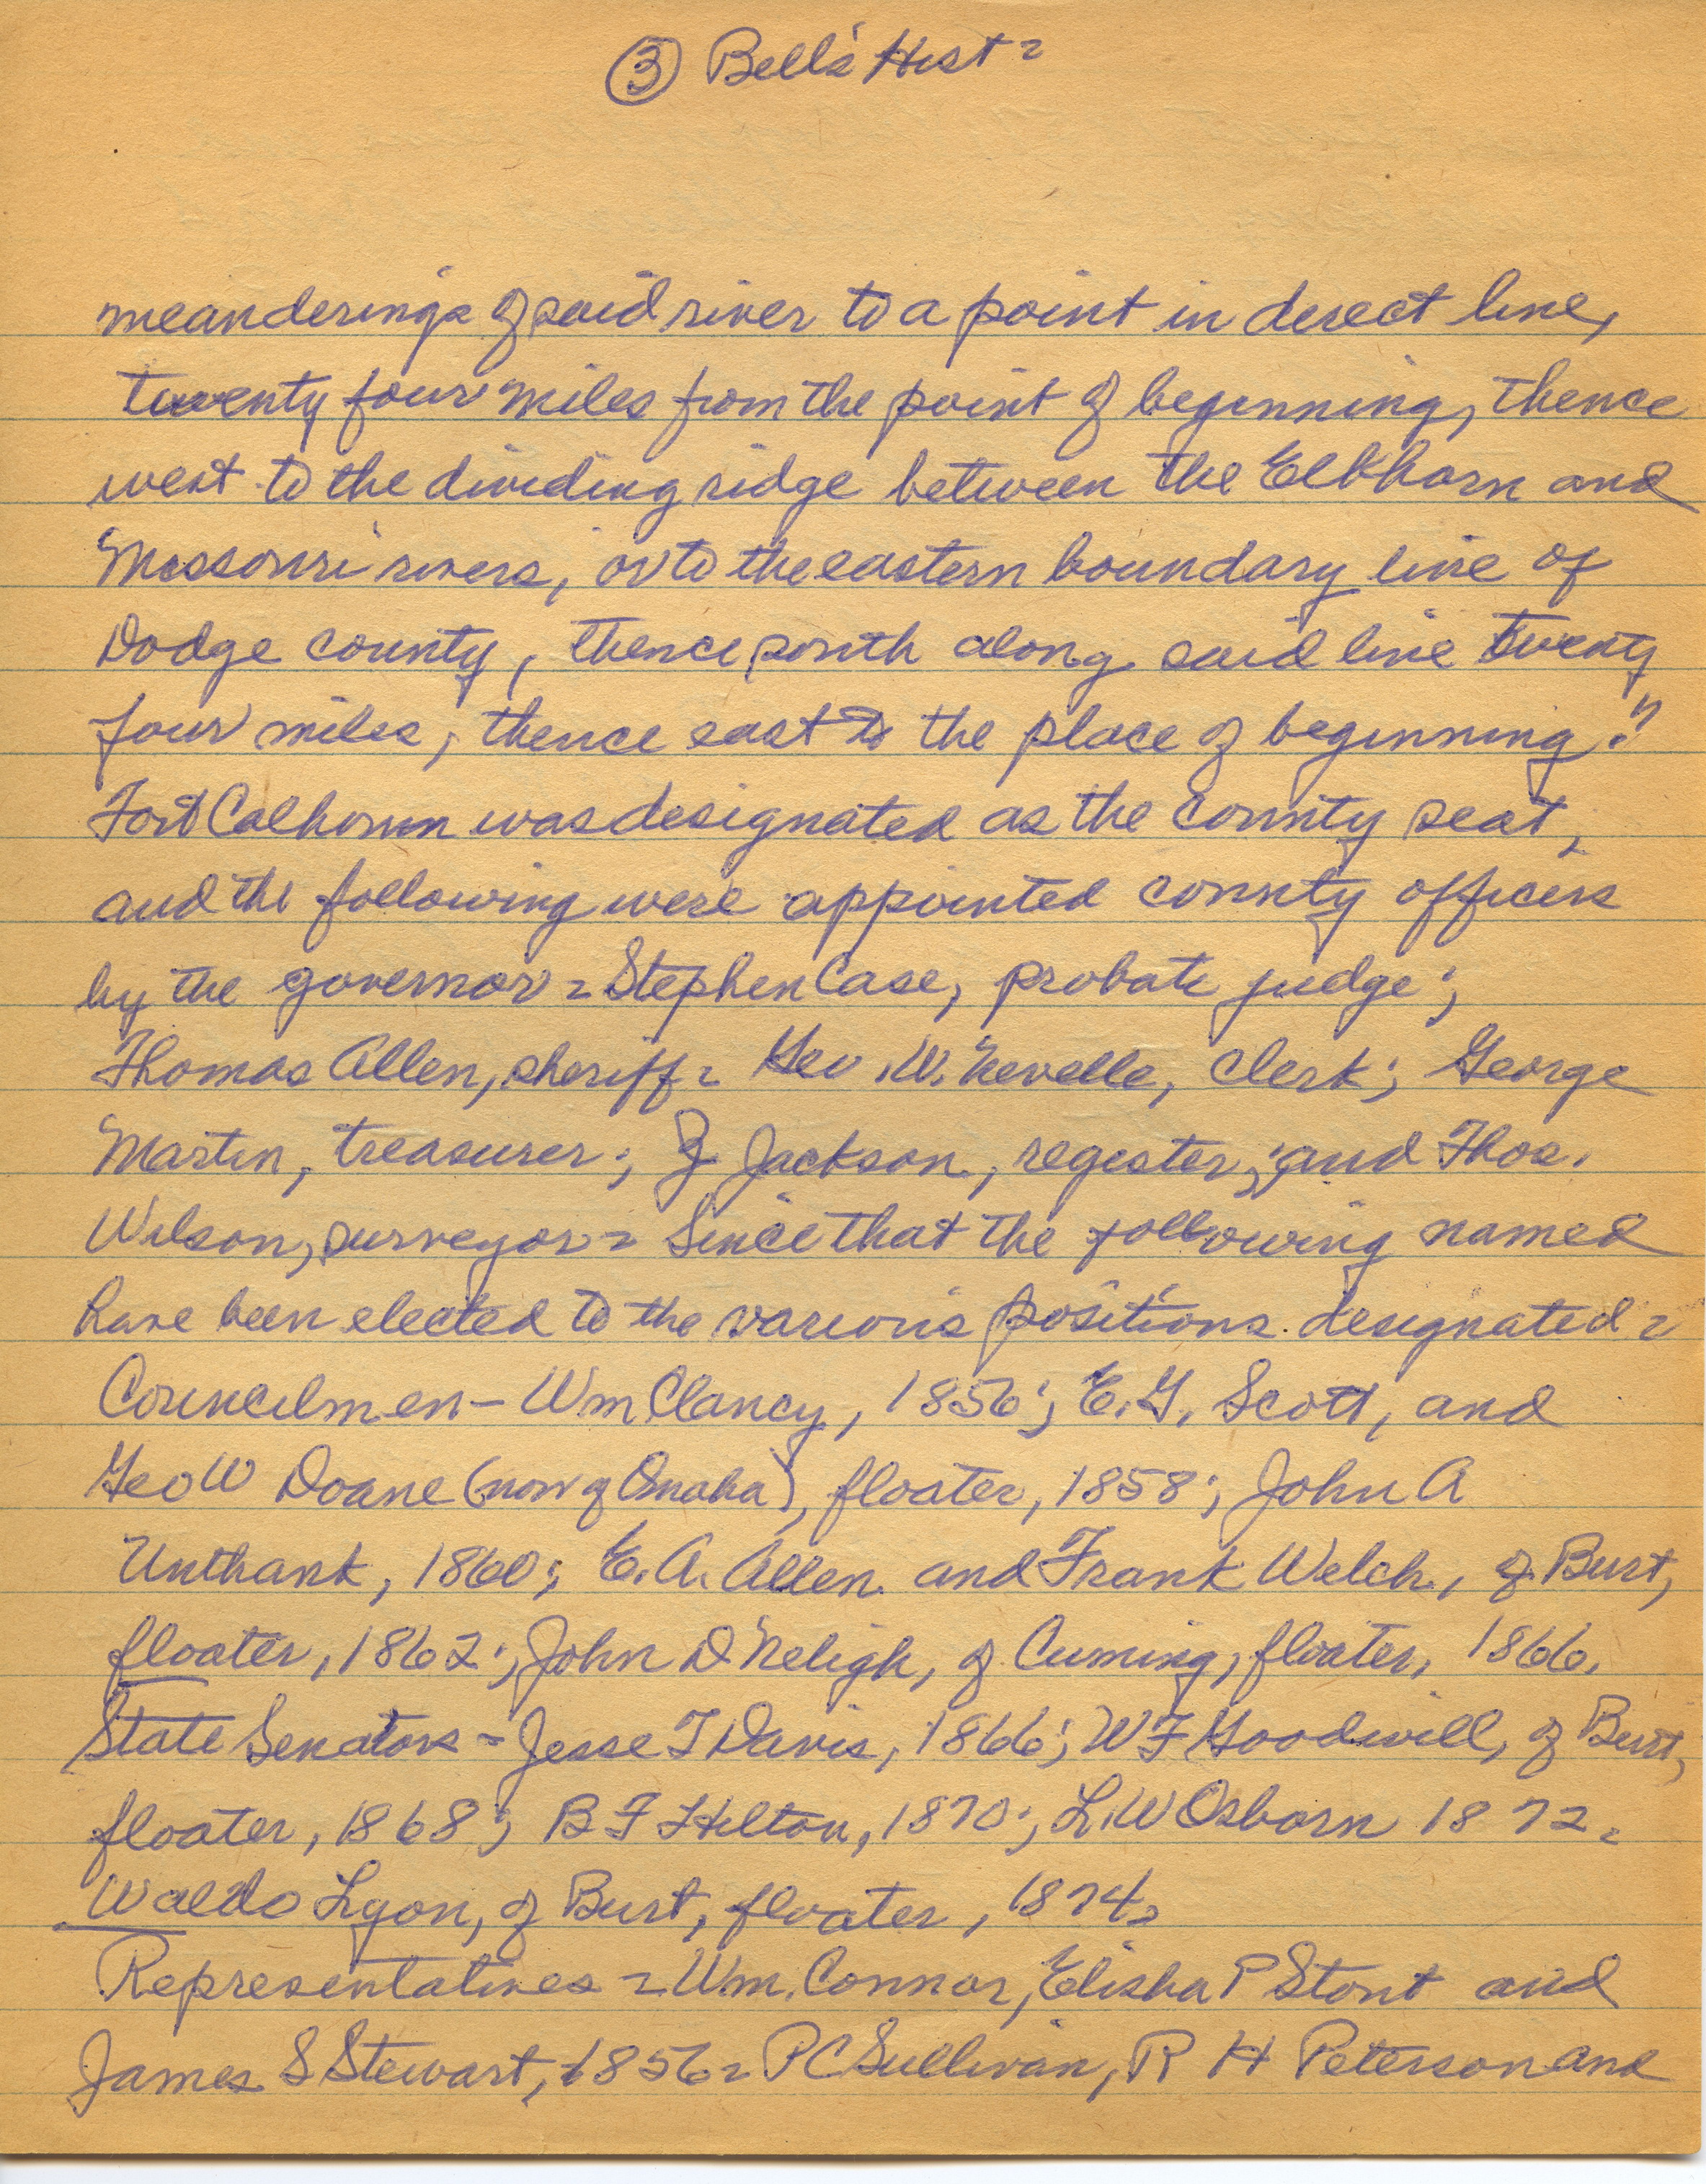 ③ Bell's Hist =
meanderings of said river to a point in direct line,
twenty four miles from the point of beginning, thence
west to the dividing ridge between the Elkhorn and
Missouri rivers, or to the eastern boundary line of
Dodge county, thence south along said line twenty
four miles, thence east to the place of beginning."
Fort Calhoun was designated as the county seat,
and the following were appointed county officers
by the governor = Stephen Case, probate judge;
Thomas Allen, sheriff = Geo. W. Nevelle, clerk; George
Martin, treasurer; J Jackson, register; and Thos.
Wilson, surveyor = Since that the following named
have been elected to the various positions designated =
Councilmen - Wm Clancy, 1856; E. G. Scott, and
Geo W Doane (now of Omaha), floater, 1858; John A
Unthank, 1860; E. A. Allen and Frank Welch, of Burt,
floater, 1862; John D Neligh, of Cuming, floater, 1866.
State Senators = Jesse T Davis, 1866; W F Goodwill, of Burt,
floater, 1868; B F Hilton, 1870; L W Osborn 1872 =
Waldo Lyon, of Burt, floater, 1874 =
Representatives = Wm. Connor, Elisha P Stout and
James S Stewart, 1856 = P C Sullivan, R H Peterson and